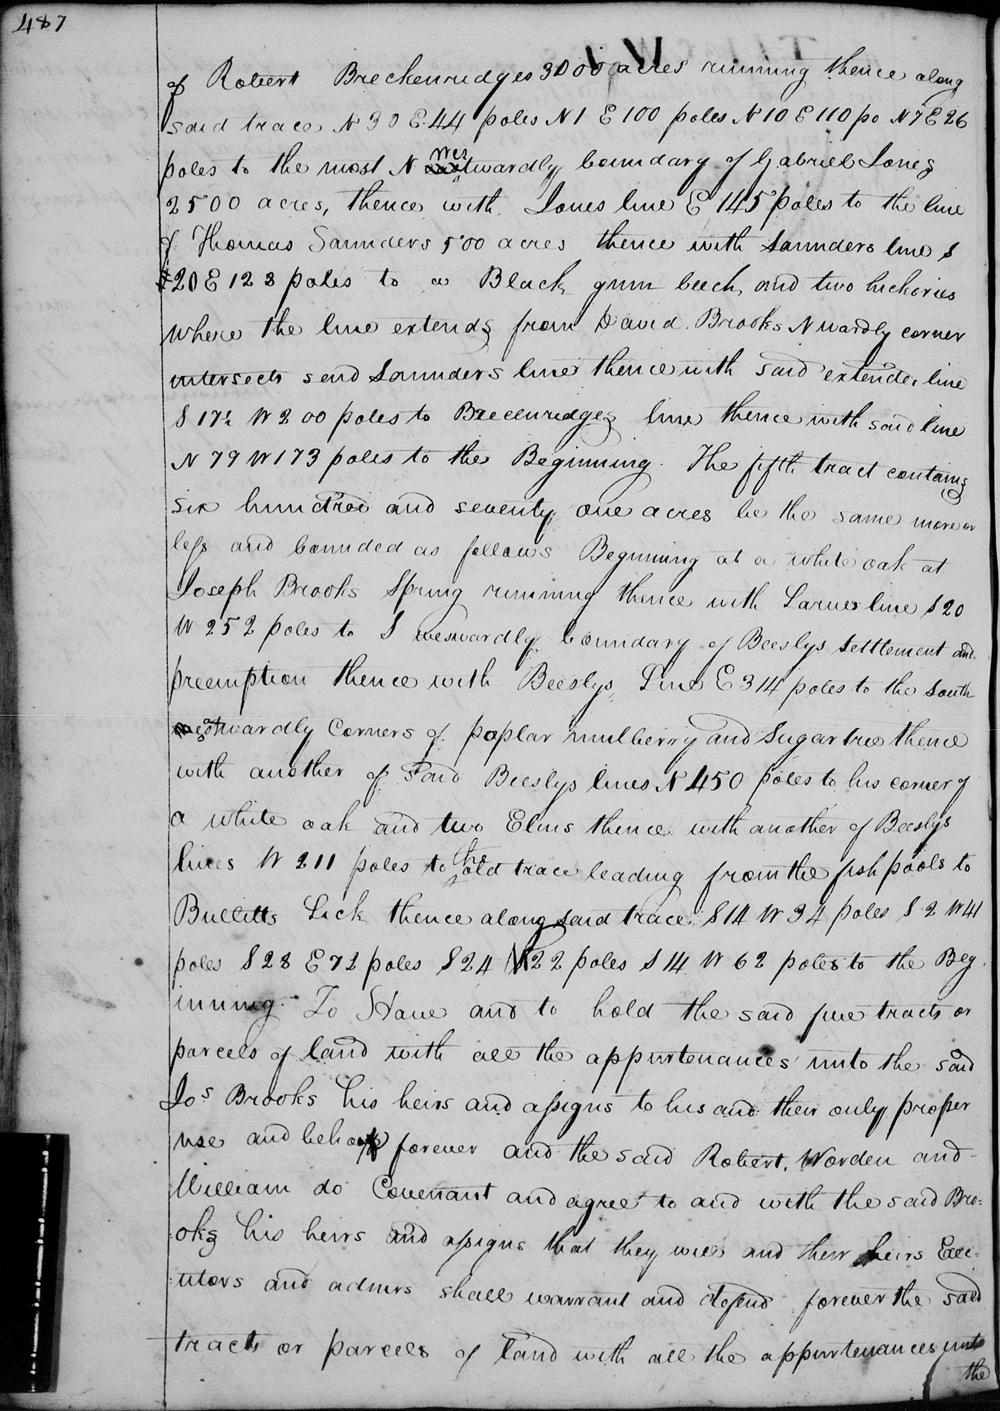 487
of Robert Breckenridges 3000 acres running thence along
said trace N 30 E 44 poles N 1 E 100 poles N 10 E 110 po N 7 E 26
poles to the most N westwardly boundary of Gabriel Jones
2500 acres, thence with Jones line E 145 poles to the line
of Thomas Saunders 500 acres thence with Saunders line S
20 E 128 poles to a Black gum beech, and two hickories
where the line extends from David Brooks Nwardly corner
intersects send Saunders line thence with said extende line
S 17½ W 200 poles to Breclenridges line thence with said line
N 79 W 173 poles to the Beginning. The fifth tract contains
six hundred and seventy one acres be the same more or
less and bounded as follows Beginning at a white oak at
Joseph Brooks Spring running thence with Larues line S 20
W 252 poles to S weswardly boundary of Beeslys settlement and
preemption thence with Beeslys, Line E 314 poles to the South
eastwardly Corners of poplar mulberry and Sugar tree thence
with another of Said Beeslys lines N 450 poles to his corner of
a white oak and two Elms thence with another of Beeslys
lines W 211 poles to the old trace leading from the fish pools to
Bullitts Lick thence along said trace S 14 W 34 poles S 2 W 41
poles S 28 E 72 poles S 24 W 22 poles S 14 W 62 poles to the Beg
inning. To Have and to hold the said five tracts or
parcels of land with all the appurtenances unto the said
Jos Brooks his heirs and assigns to his and their only proper
use and behoof forever and the said Robert, Worden and
William do Covenant and agree to and with the said Bro=
oks his heirs and assigns that they will and their heirs Exe
utors and admrs shall warrant and defend forever the said
tracts or parcels of land with all the appurtenances unto
the